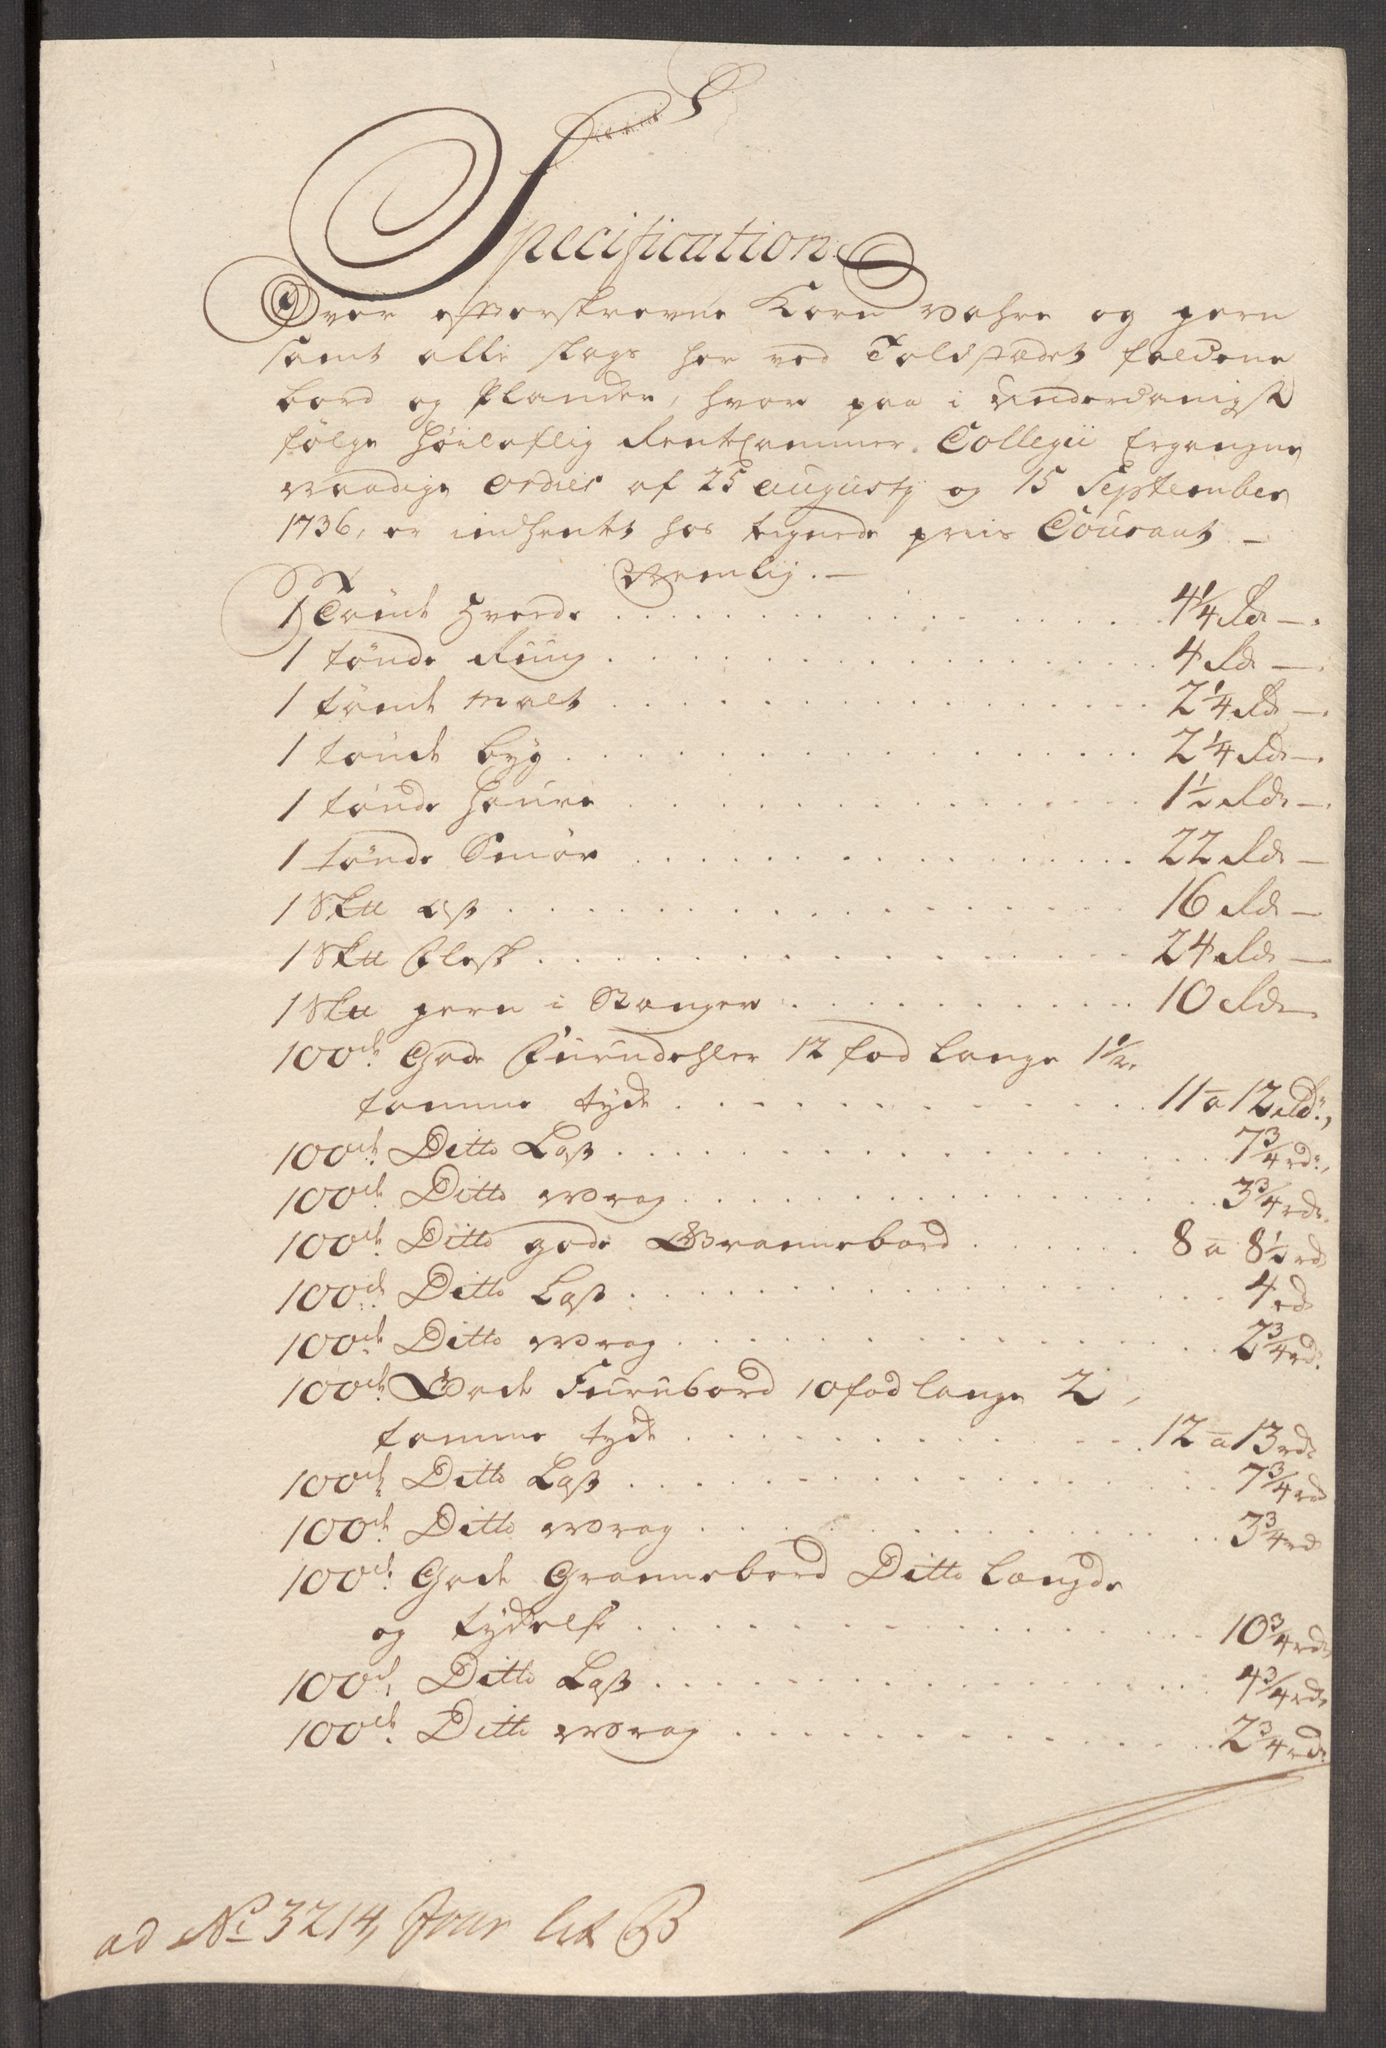 Specification
Over effterskrevne Korn vahre og jern
samt alle slags her ved Toldstædet faldene
bord og Plancker, hvor paa i underdanigst
følge Høilofflig Rentecammer Collegii Ergangne
Naadige Ordres af 25 Augustj og 15 September
1736, er indhentt hos tegnede priis Courant —
Nemlig. —
1 Tønde Hvede . . . 4 1/4 Rd —
1 tønde Rug . . . 4 Rd —
1 tønde Malt . . . 2 1/4 Rd —
1 tønde byg . . . 2 1/4 Rd —
1 tønde Haure . . . 1 1/2 Rd —
1 tønde Smør . . . 22 Rd —
1 Sk℔ Ost . . . 16 Rd —
1 Sk℔ Flesk . . . 24 Rd —
1 Sk℔ jern i Stanger . . . 10 Rd —
100de Gode Furudehler 12 fod lange 1 1/2
tomme tyck . . . 11 a 12 Rd
100de Ditto Last . . . 7 3/4 rd
100de Ditto Wrag . . . 3 3/4 rd
100de Ditto gode Grannebord . . . 8 a 8 1/2 rd
100de Ditto Last . . . 4 rd
100de Ditto Wrag . . . 2 3/4 rd
100de Gode Furubord 10 fod lange 2
tomme tyck . . . 12 a 13 rd
100de Ditto Last . . . 7 3/4 rd
100de Ditto Wrag . . . 3 3/4 rd
100de Gode Grannebord Ditto Længde
og tyckelse . . . 10 3/4 rd
100de Ditto Last . . . 4 3/4 rd
100de Ditto Wrag . . . 2 3/4 rd
ad No 3214, Jour lit B